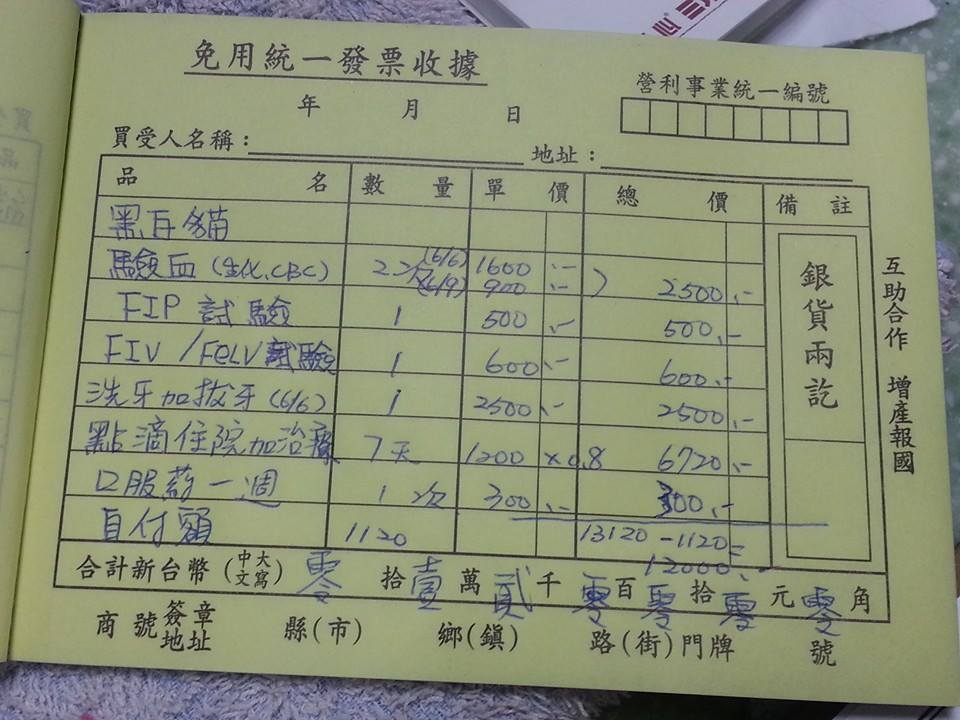 免用統一發票收據
年 月 日
營利事業統一編號
買受人名稱： 地址：
品 名 數 量 單 價 總 價 備 註
黑白貓
驗血(生化,CBC) 2次(6/6) 1600.-
(6/9) 900.- ) 2500.-
FIP 試驗 1 500.- 500.-
FIV/FeLV試驗 1 600.- 600.-
洗牙加拔牙(6/6) 1 2500.- 2500.-
點滴住院加治療 7天 1200 x0.8 6720.-
口服葯一週 1次 300.- 300.-
自付額 1120 13120-1120=
12000.-
合計新台幣(中文大寫) 零 拾 壹 萬 貳 千 零 百 零 拾 零 元 零 角
商號簽章地址 縣(市) 鄉(鎮) 路(街)門牌 號
銀貨兩訖
互助合作 增產報國